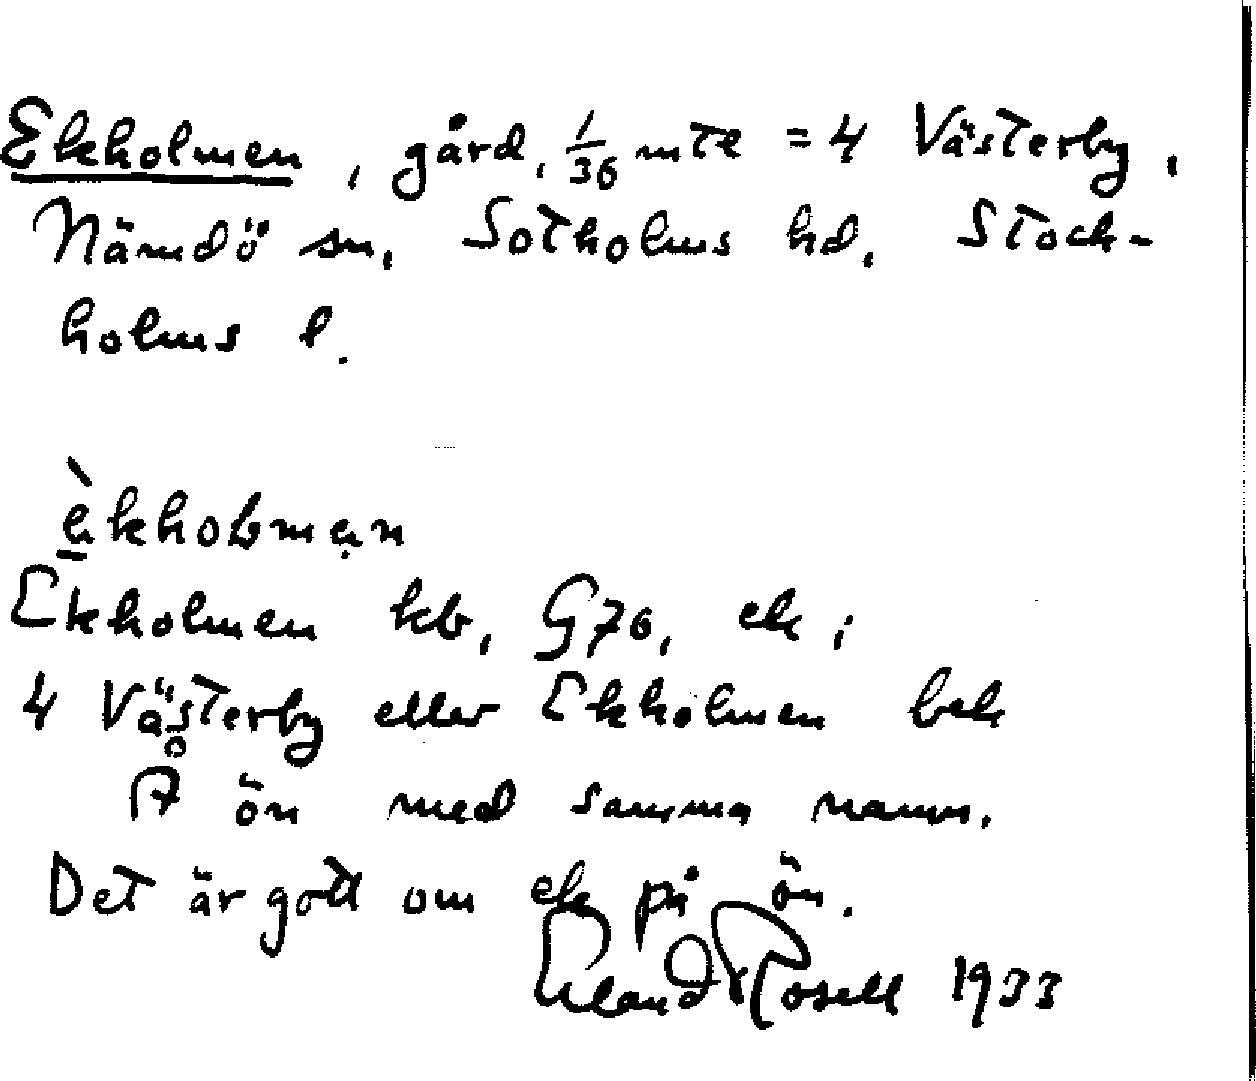 Ekholmen, gård, 1/36 mtl = 4 Västerby,
Nämdö sn, Sotholms hd, Stock-
holms l.
èkholmen
Ekholmen kb, G76, ek;
4 Västerby eller Ekholmen bek
På ön med samma namn.
Det är gott om ek på ön.
Erland Rosell 1933